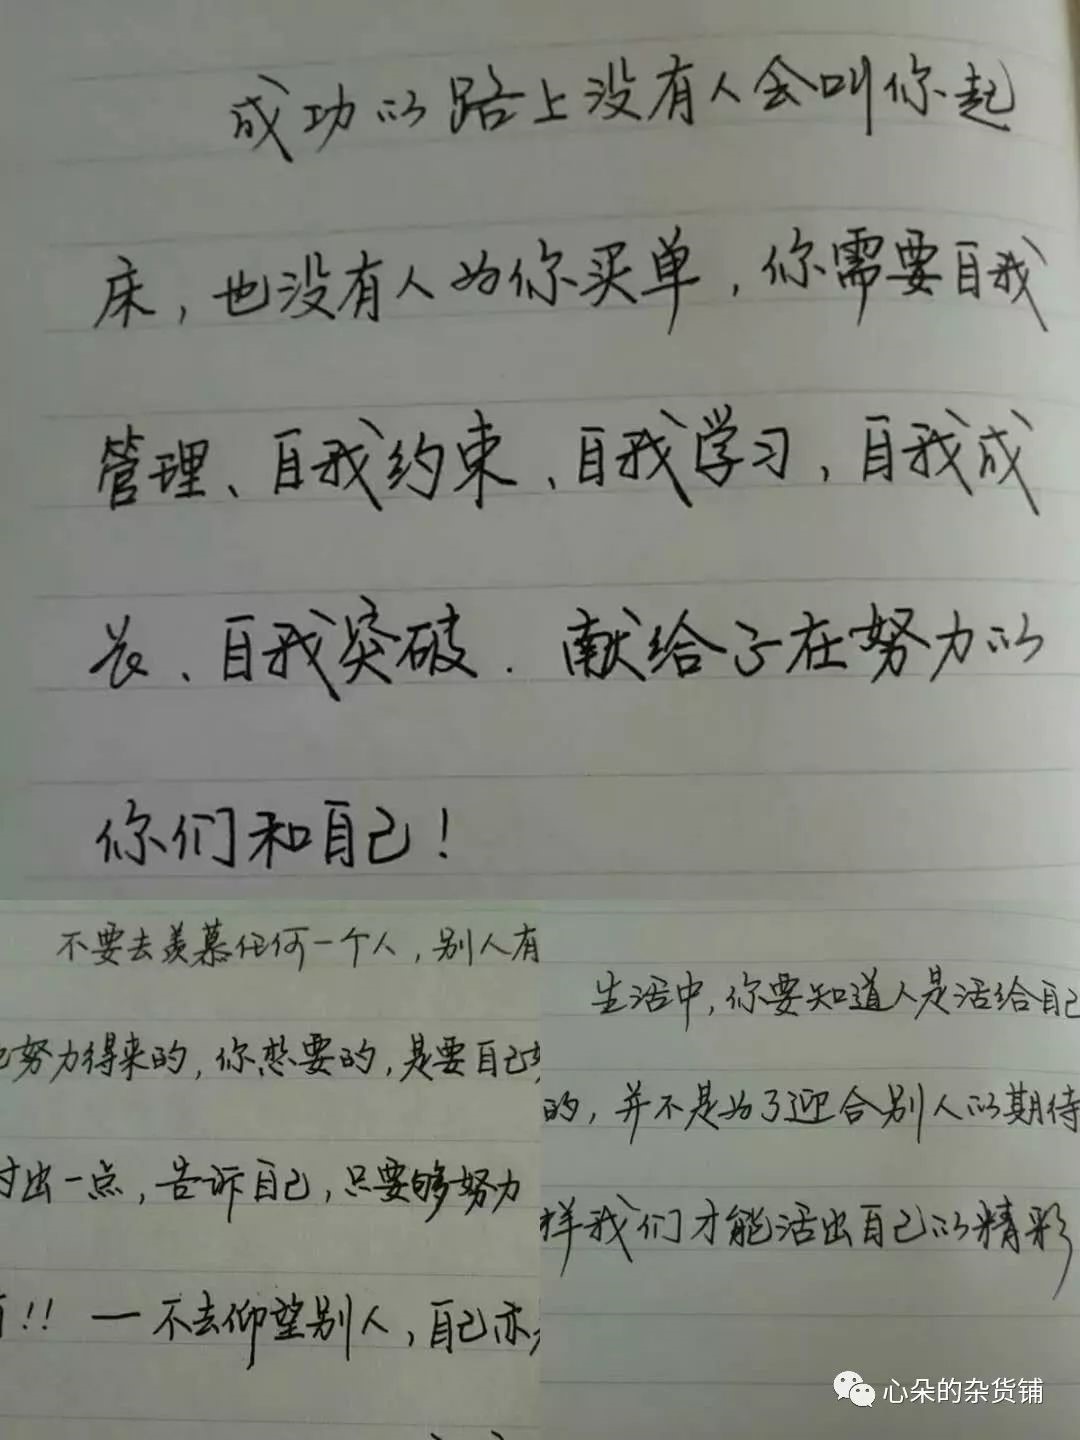 成功的路上没有人会叫你起
床，也没有人为你买单，你需要自我
管理、自我约束、自我学习，自我成
长、自我突破．献给了在努力的
你们和自己！
不要去羡慕任何一个人，别人有
努力得来的，你想要的，是要自己
付出一点，告诉自己，只要够努力
！！一不去仰望别人，自己亦
生活中，你要知道人是活给自己
的，并不是为了迎合别人的期待
样我们才能活出自己的精彩
心朵的杂货铺